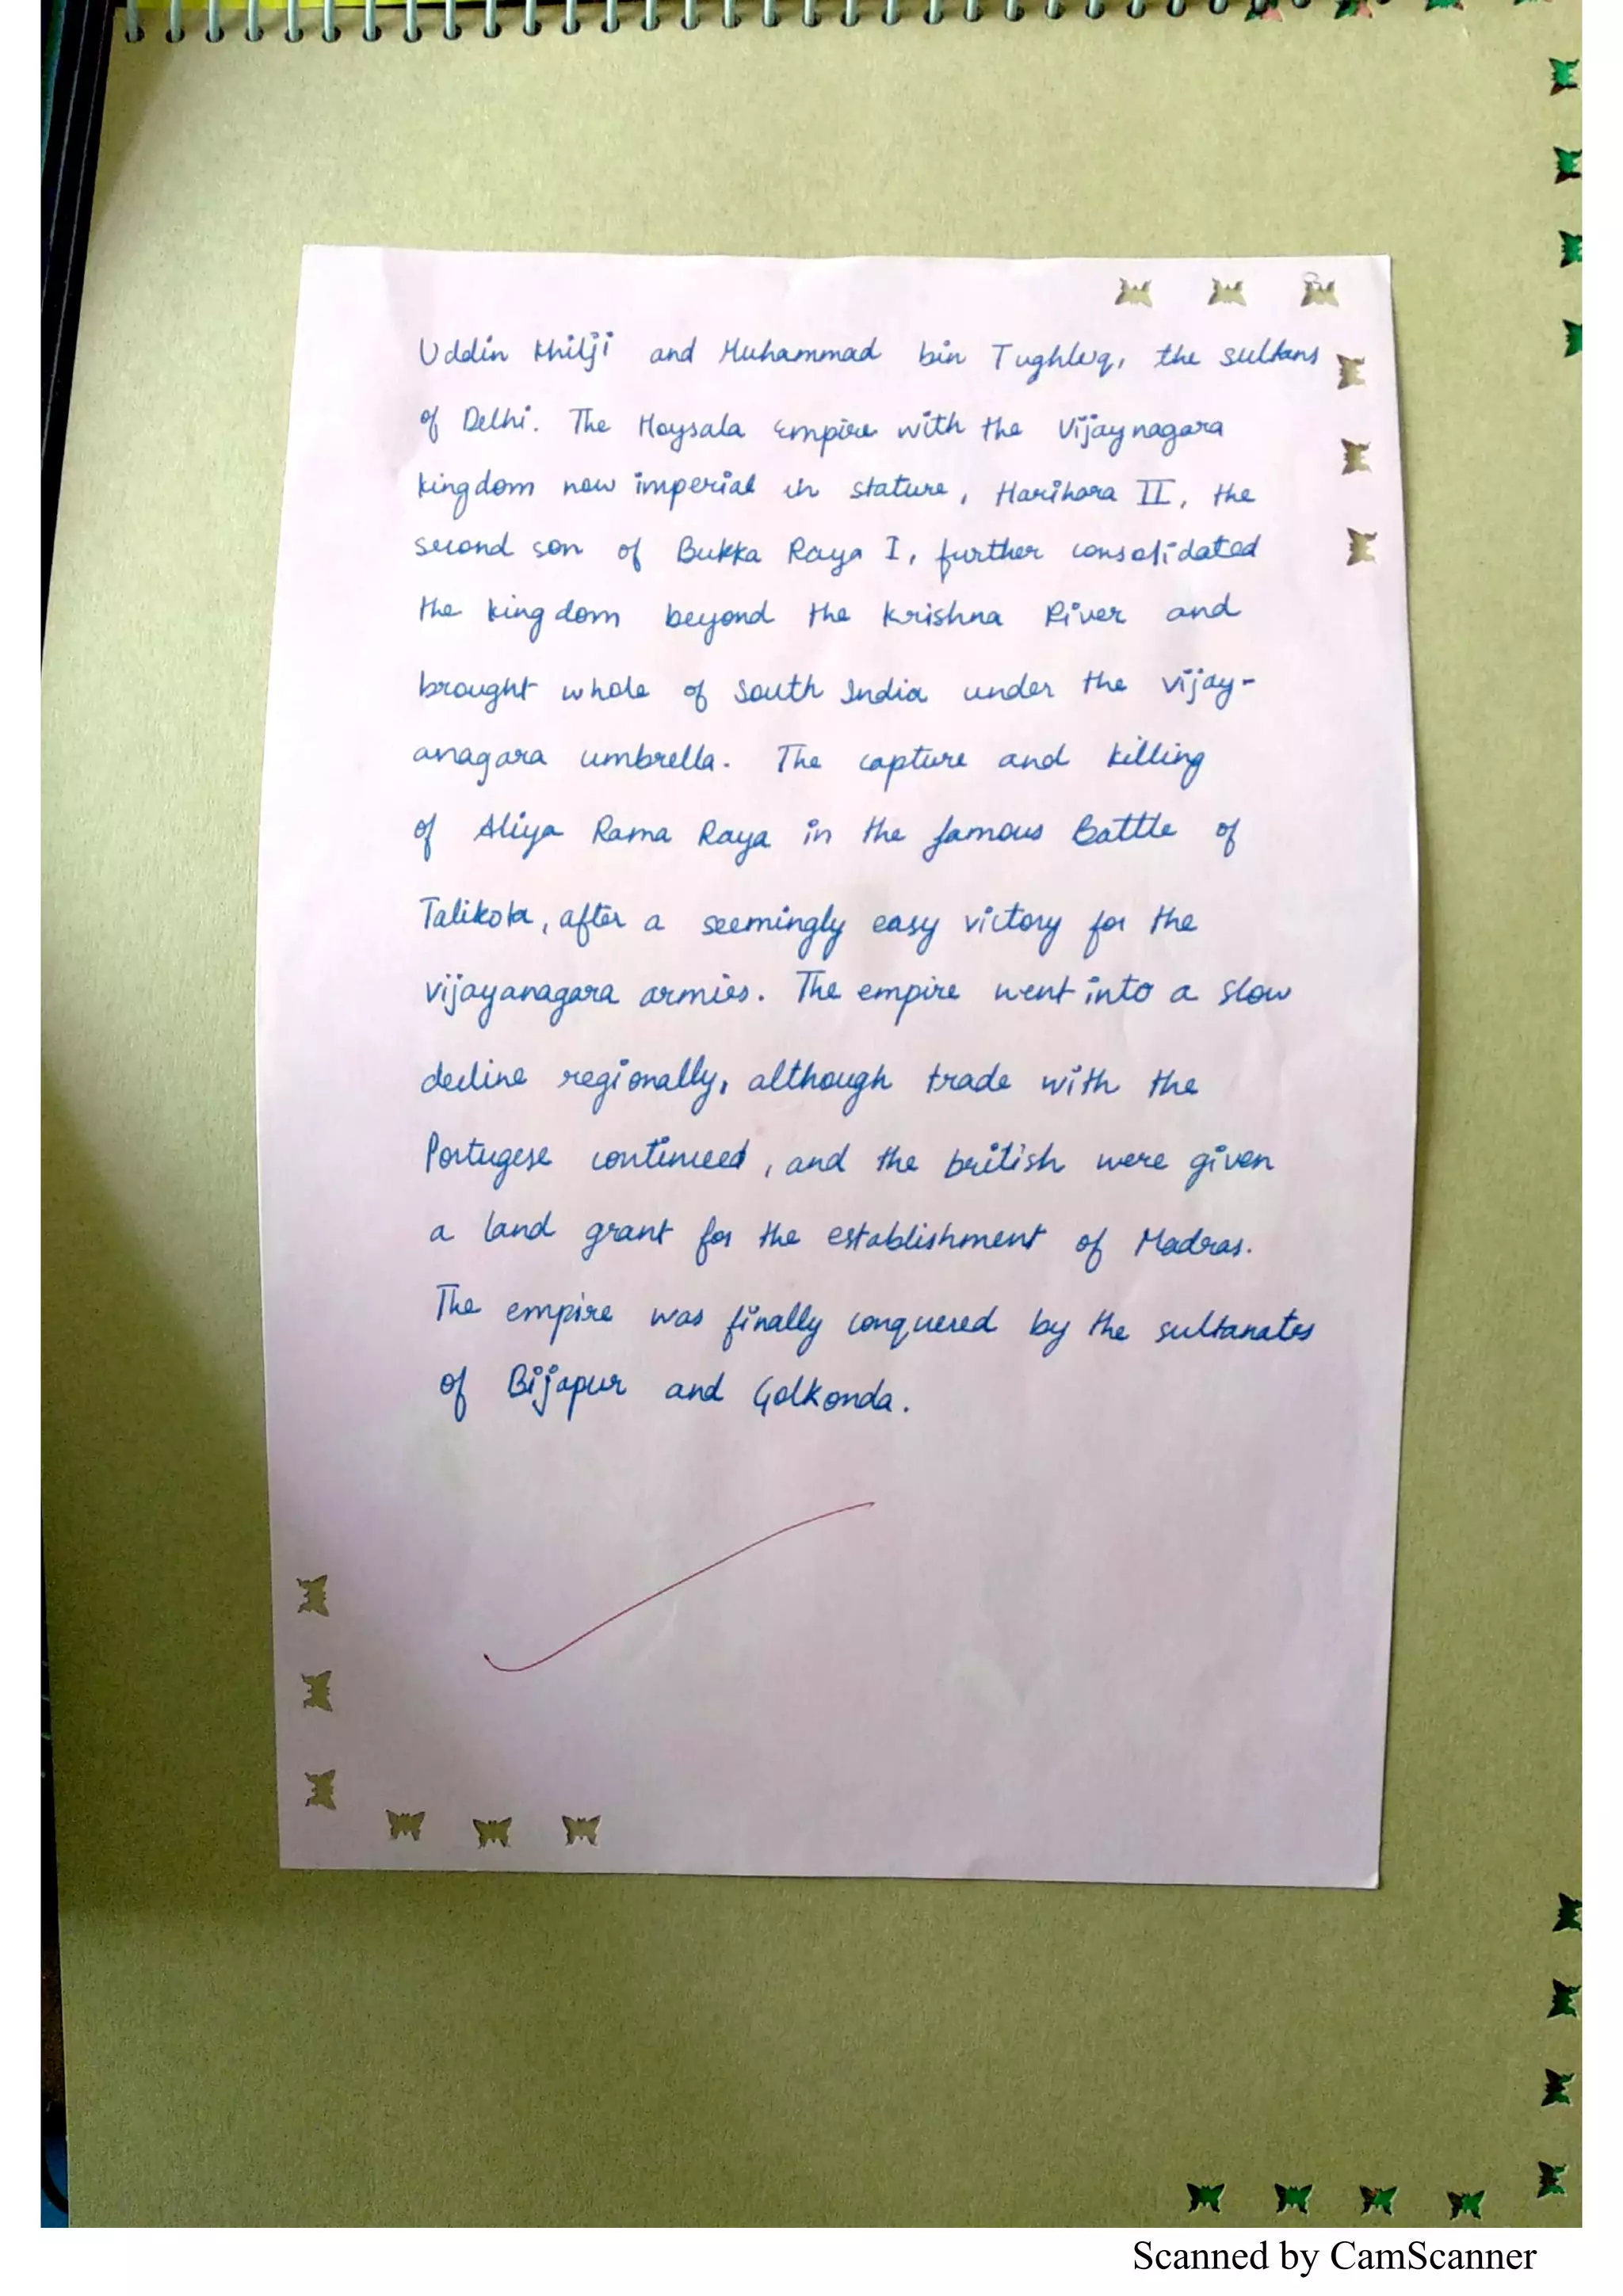 Uddin Khilji and Muhammad bin Tughluq, the sultans
of Delhi. The Hoysala Empire with the Vijaynagara
kingdom now imperial in stature, Harihara II, the
second son of Bukka Raya I, further consolidated
the kingdom beyond the Krishna River and
brought whole of South India under the vijay-
anagara umbrella. The capture and killing
of Aliya Rama Raya in the famous Battle of
Talikota, after a seemingly easy victory for the
vijayanagara armies. The empire went into a slow
decline regionally, although trade with the
Portugese continued, and the british were given
a land grant for the establishment of Madras.
The empire was finally conquered by the sultanates
of Bijapur and Golkonda.
Scanned by CamScanner